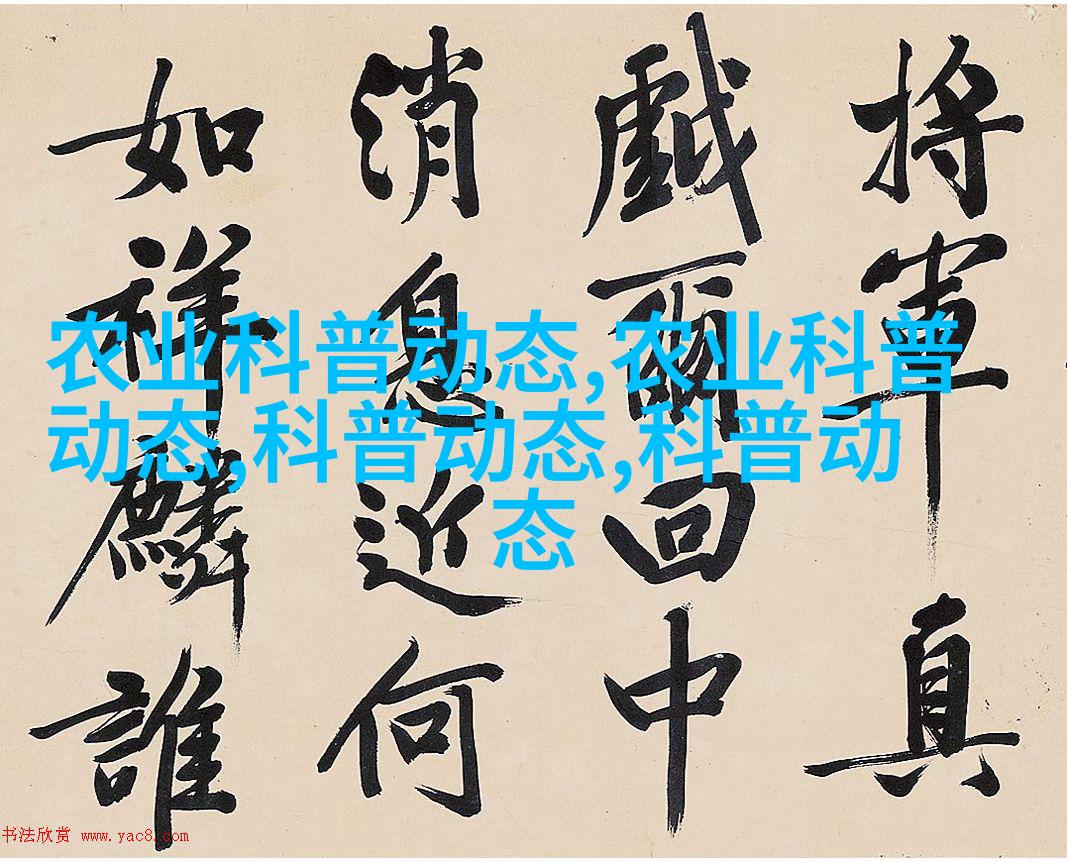 将軍真
戱爾回中
消息近何
如祥麟誰
农业科普动态,农业科普
动态,科普动态,科普动
态
书法欣赏 www.yac8.com